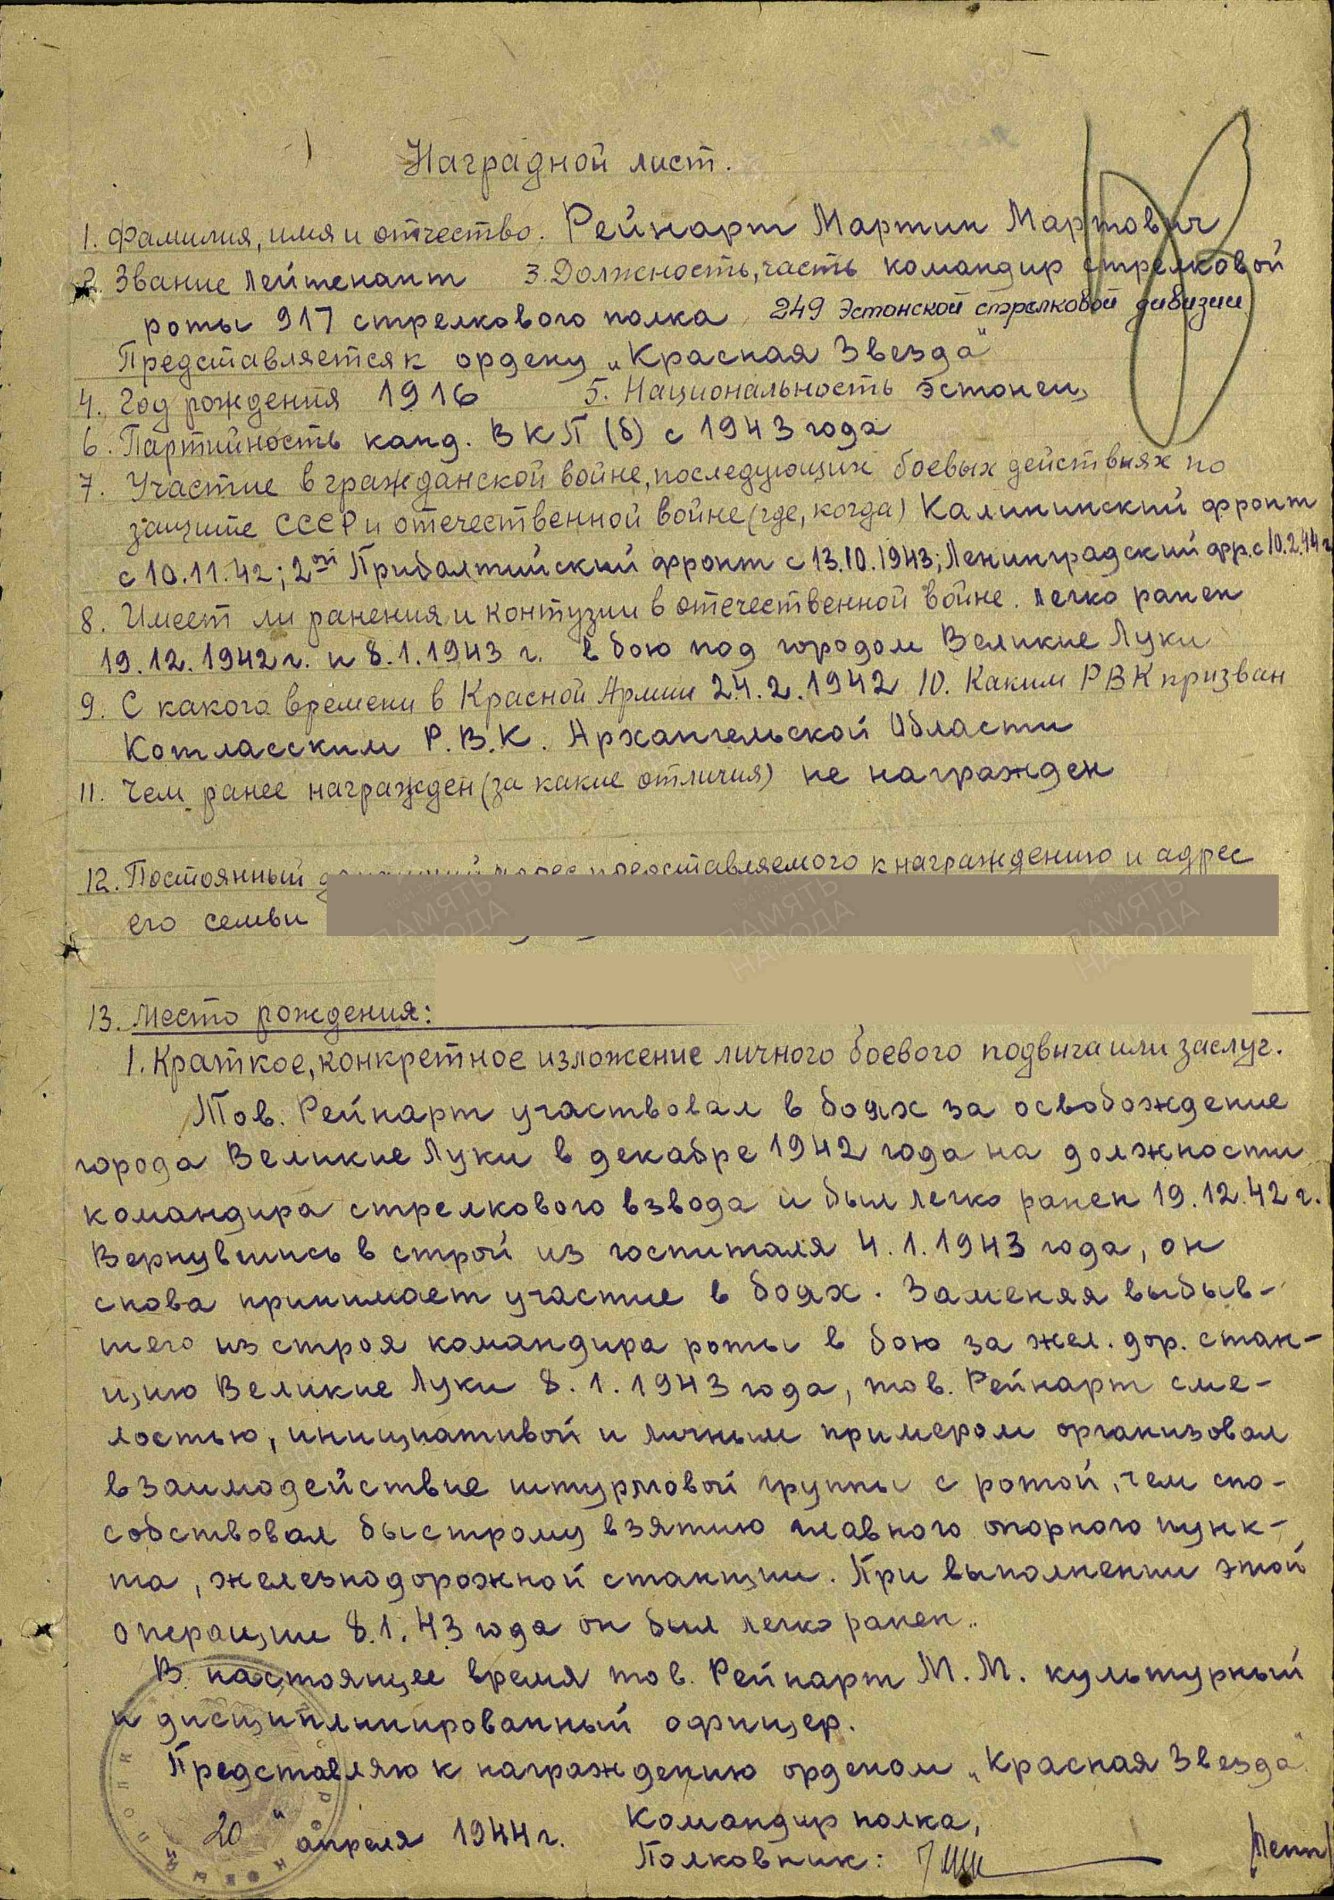 Наградной лист.
1. Фамилия, имя и отчество. Рейнарт Мартин Мартович
2. Звание лейтенант 3. Должность, часть командир стрелковой
роты 917 стрелкового полка 249 Эстонской стрелковой дивизии
Представляется к ордену „Красная Звезда"
4. Год рождения 1916 5. Национальность эстонец
6. Партийность канд. ВКП(б) с 1943 года
7. Участие в гражданской войне, последующих боевых действиях по
защите СССР и отечественной войне (где, когда) Калининский фронт
с 10.11.42; 2ой Прибалтийский фронт с 13.10.1943; Ленинградский фр. с 10.2.44 г
8. Имеет ли ранения и контузии в отечественной войне. легко ранен
19.12.1942 г. и 8.1.1943 г. в бою под городом Великие Луки
9. С какого времени в Красной Армии 24.2.1942 10. Каким РВК призван
Котласским Р.В.К. Архангельской Области
11. Чем ранее награжден (за какие отличия) не награжден
12. Постоянный представляемого к награждению и адрес
его семьи
13. Место рождения:
1. Краткое, конкретное изложение личного боевого подвига или заслуг.
Тов. Рейнарт участвовал в боях за освобождение
города Великие Луки в декабре 1942 года на должности
командира стрелкового взвода и был легко ранен 19.12.42 г.
Вернувшись в строй из госпиталя 4.1.1943 года, он
снова принимает участие в боях. Заменяя выбыв-
шего из строя командира роты в бою за жел. дор. стан-
цию Великие Луки 8.1.1943 года, тов. Рейнарт сме-
лостью, инициативой и личным примером организовал
взаимодействие штурмовой группы с ротой, чем спо-
собствовал быстрому взятию главного опорного пунк-
та, железнодорожной станции. При выполнении этой
операции 8.1.43 года он был легко ранен.
В настоящее время тов. Рейнарт М.М. культурный
и дисциплинированный офицер.
Представляю к награждению орденом „Красная Звезда"
20 " апреля 1944 г. Командир полка,
Полковник: